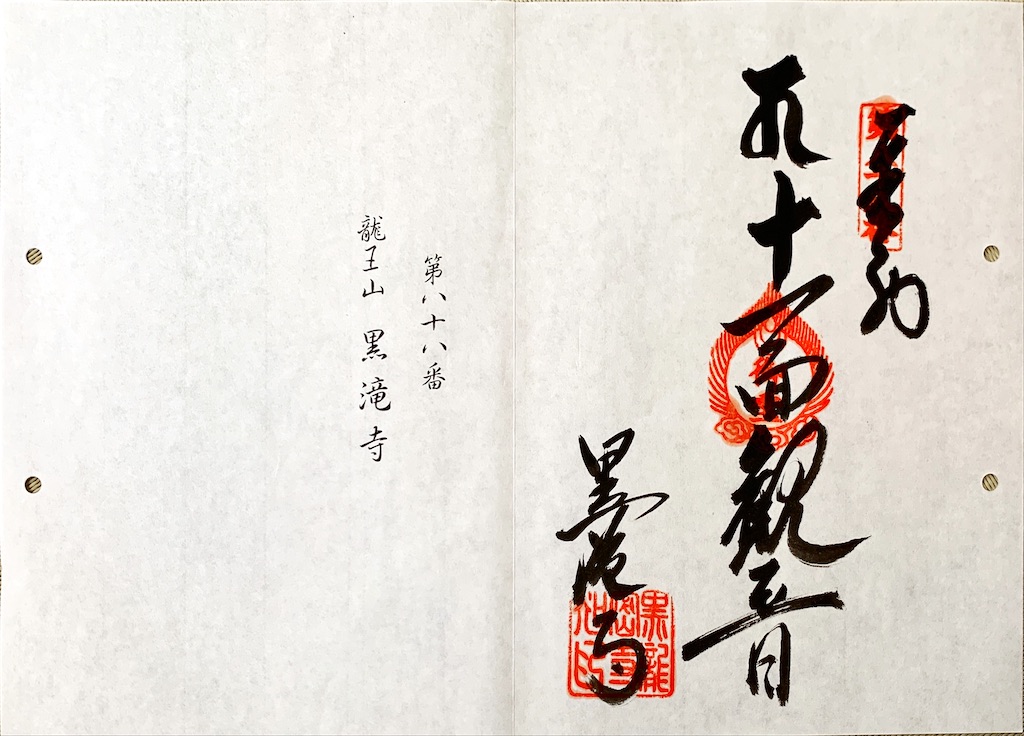 奉納
十一面観音
黒滝寺
第八十八番
龍王山 黒滝寺